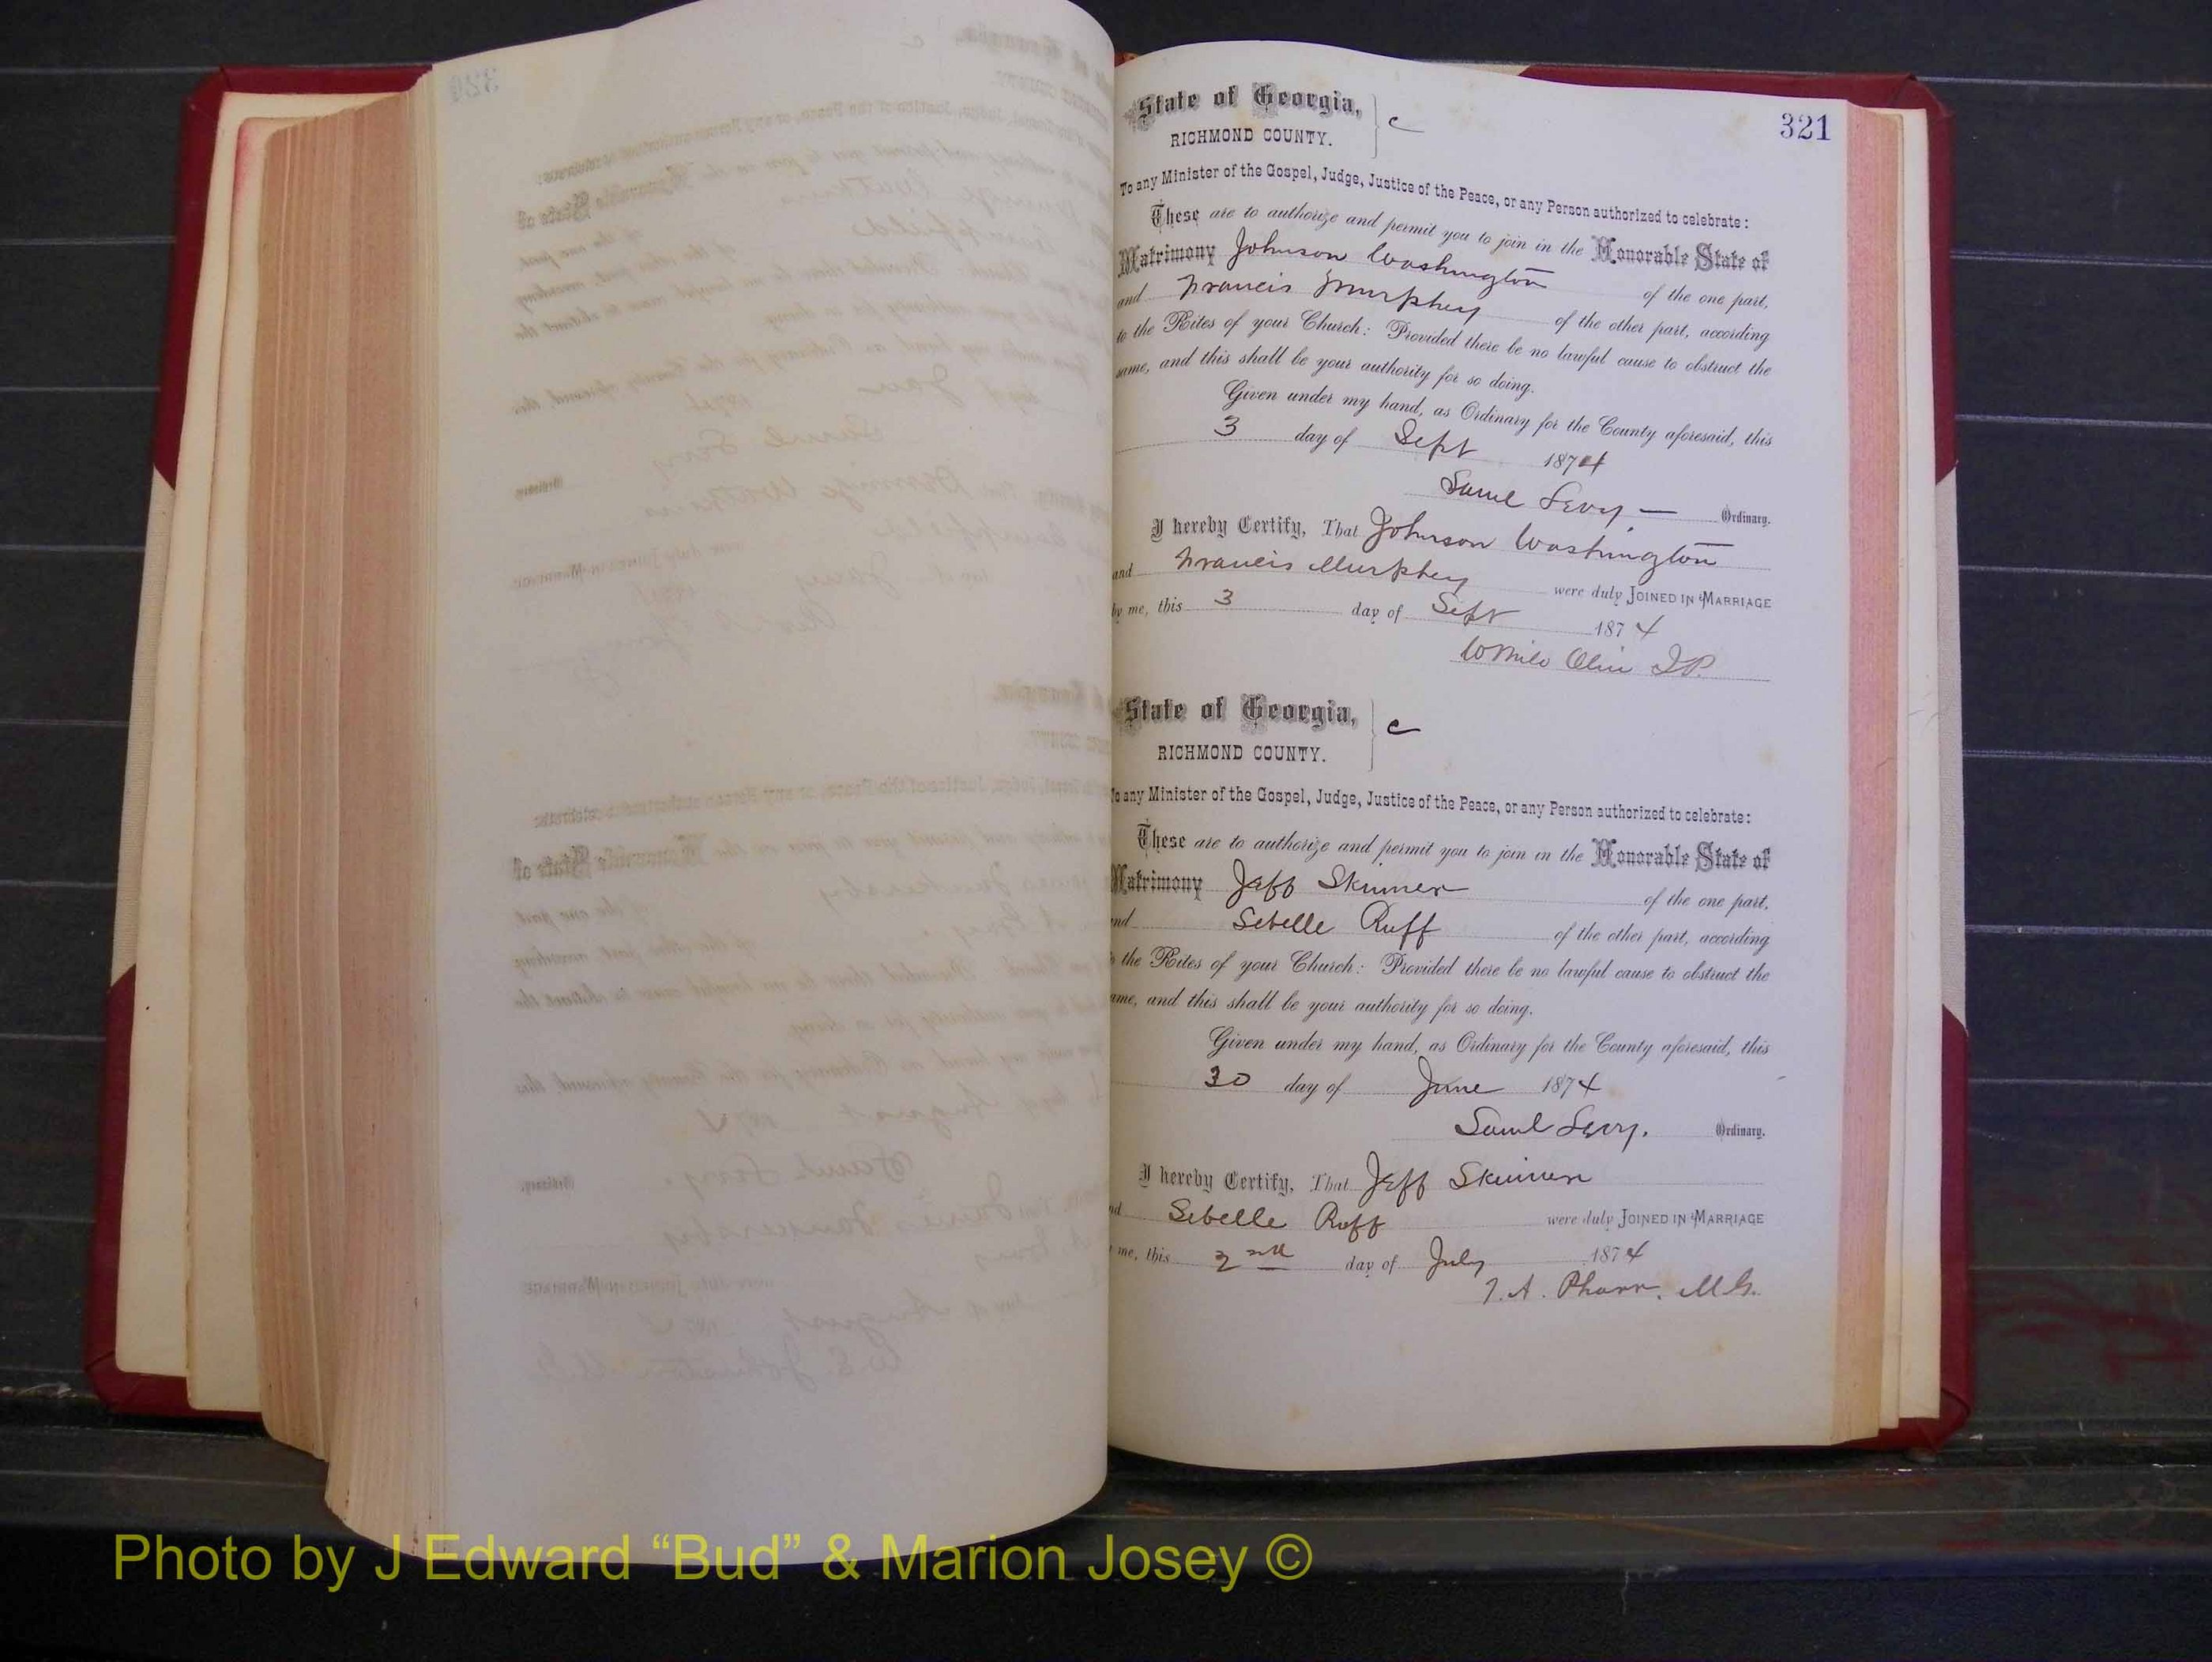 321
State of Georgia,
RICHMOND COUNTY. } c
To any Minister of the Gospel, Judge, Justice of the Peace, or any Person authorized to celebrate:
These are to authorize and permit you to join in the Honorable State of
Matrimony Johnson Washington of the one part,
and Francis Murphey of the other part, according
to the Rites of your Church: Provided there be no lawful cause to obstruct the
same, and this shall be your authority for so doing.
Given under my hand, as Ordinary for the County aforesaid, this
3 day of Sept 1874
Saml Levy — Ordinary.
I hereby Certify, That Johnson Washington
and Francis Murphey were duly JOINED IN MARRIAGE
by me, this 3 day of Sept 1874
W Milo Olin J.P.
State of Georgia,
RICHMOND COUNTY. } c
To any Minister of the Gospel, Judge, Justice of the Peace, or any Person authorized to celebrate:
These are to authorize and permit you to join in the Honorable State of
Matrimony Jeff Skinner of the one part,
and Sebelle Ruff of the other part, according
to the Rites of your Church: Provided there be no lawful cause to obstruct the
same, and this shall be your authority for so doing.
Given under my hand, as Ordinary for the County aforesaid, this
30 day of June 1874
Saml Levy. Ordinary.
I hereby Certify, That Jeff Skinner
and Sebelle Ruff were duly JOINED IN MARRIAGE
me, this 2nd day of July 1874
T. A. Pharr, M.G.
Photo by J Edward “Bud” & Marion Josey ©